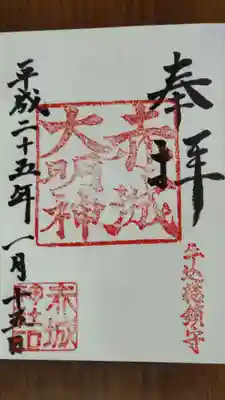 奉拝
牛込総鎮守
赤城
大明神
平成二十五年一月十五日
赤城
神社印